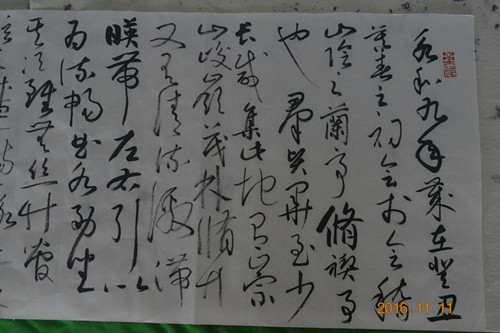 永和九年歲在癸丑
暮春之初會於會稽
山陰之蘭亭脩禊事
也群賢畢至少
長咸集此地有崇
山峻嶺茂林脩竹
又有清流激湍
暎帶左右引以
為流觴曲水列坐
其次雖無絲竹管
2016. 11. 11